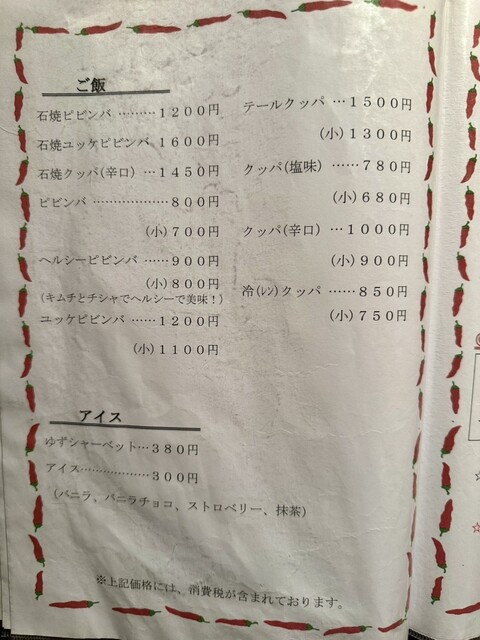 ご飯
石焼ビビンバ ………１２００円
石焼ユッケビビンバ １６００円
石焼クッパ(辛口) …１４５０円
ビビンバ ………………８００円
(小)７００円
ヘルシービビンバ ……９００円
(小)８００円
(キムチとチシャでヘルシーで美味！)
ユッケビビンバ ……１２００円
(小)１１００円
テールクッパ …１５００円
(小)１３００円
クッパ(塩味) ……７８０円
(小)６８０円
クッパ(辛口) …１０００円
(小)９００円
冷(ﾚﾝ)クッパ ……８５０円
(小)７５０円
アイス
ゆずシャーベット…３８０円
アイス………………３００円
(バニラ、バニラチョコ、ストロベリー、抹茶)
※上記価格には、消費税が含まれております。